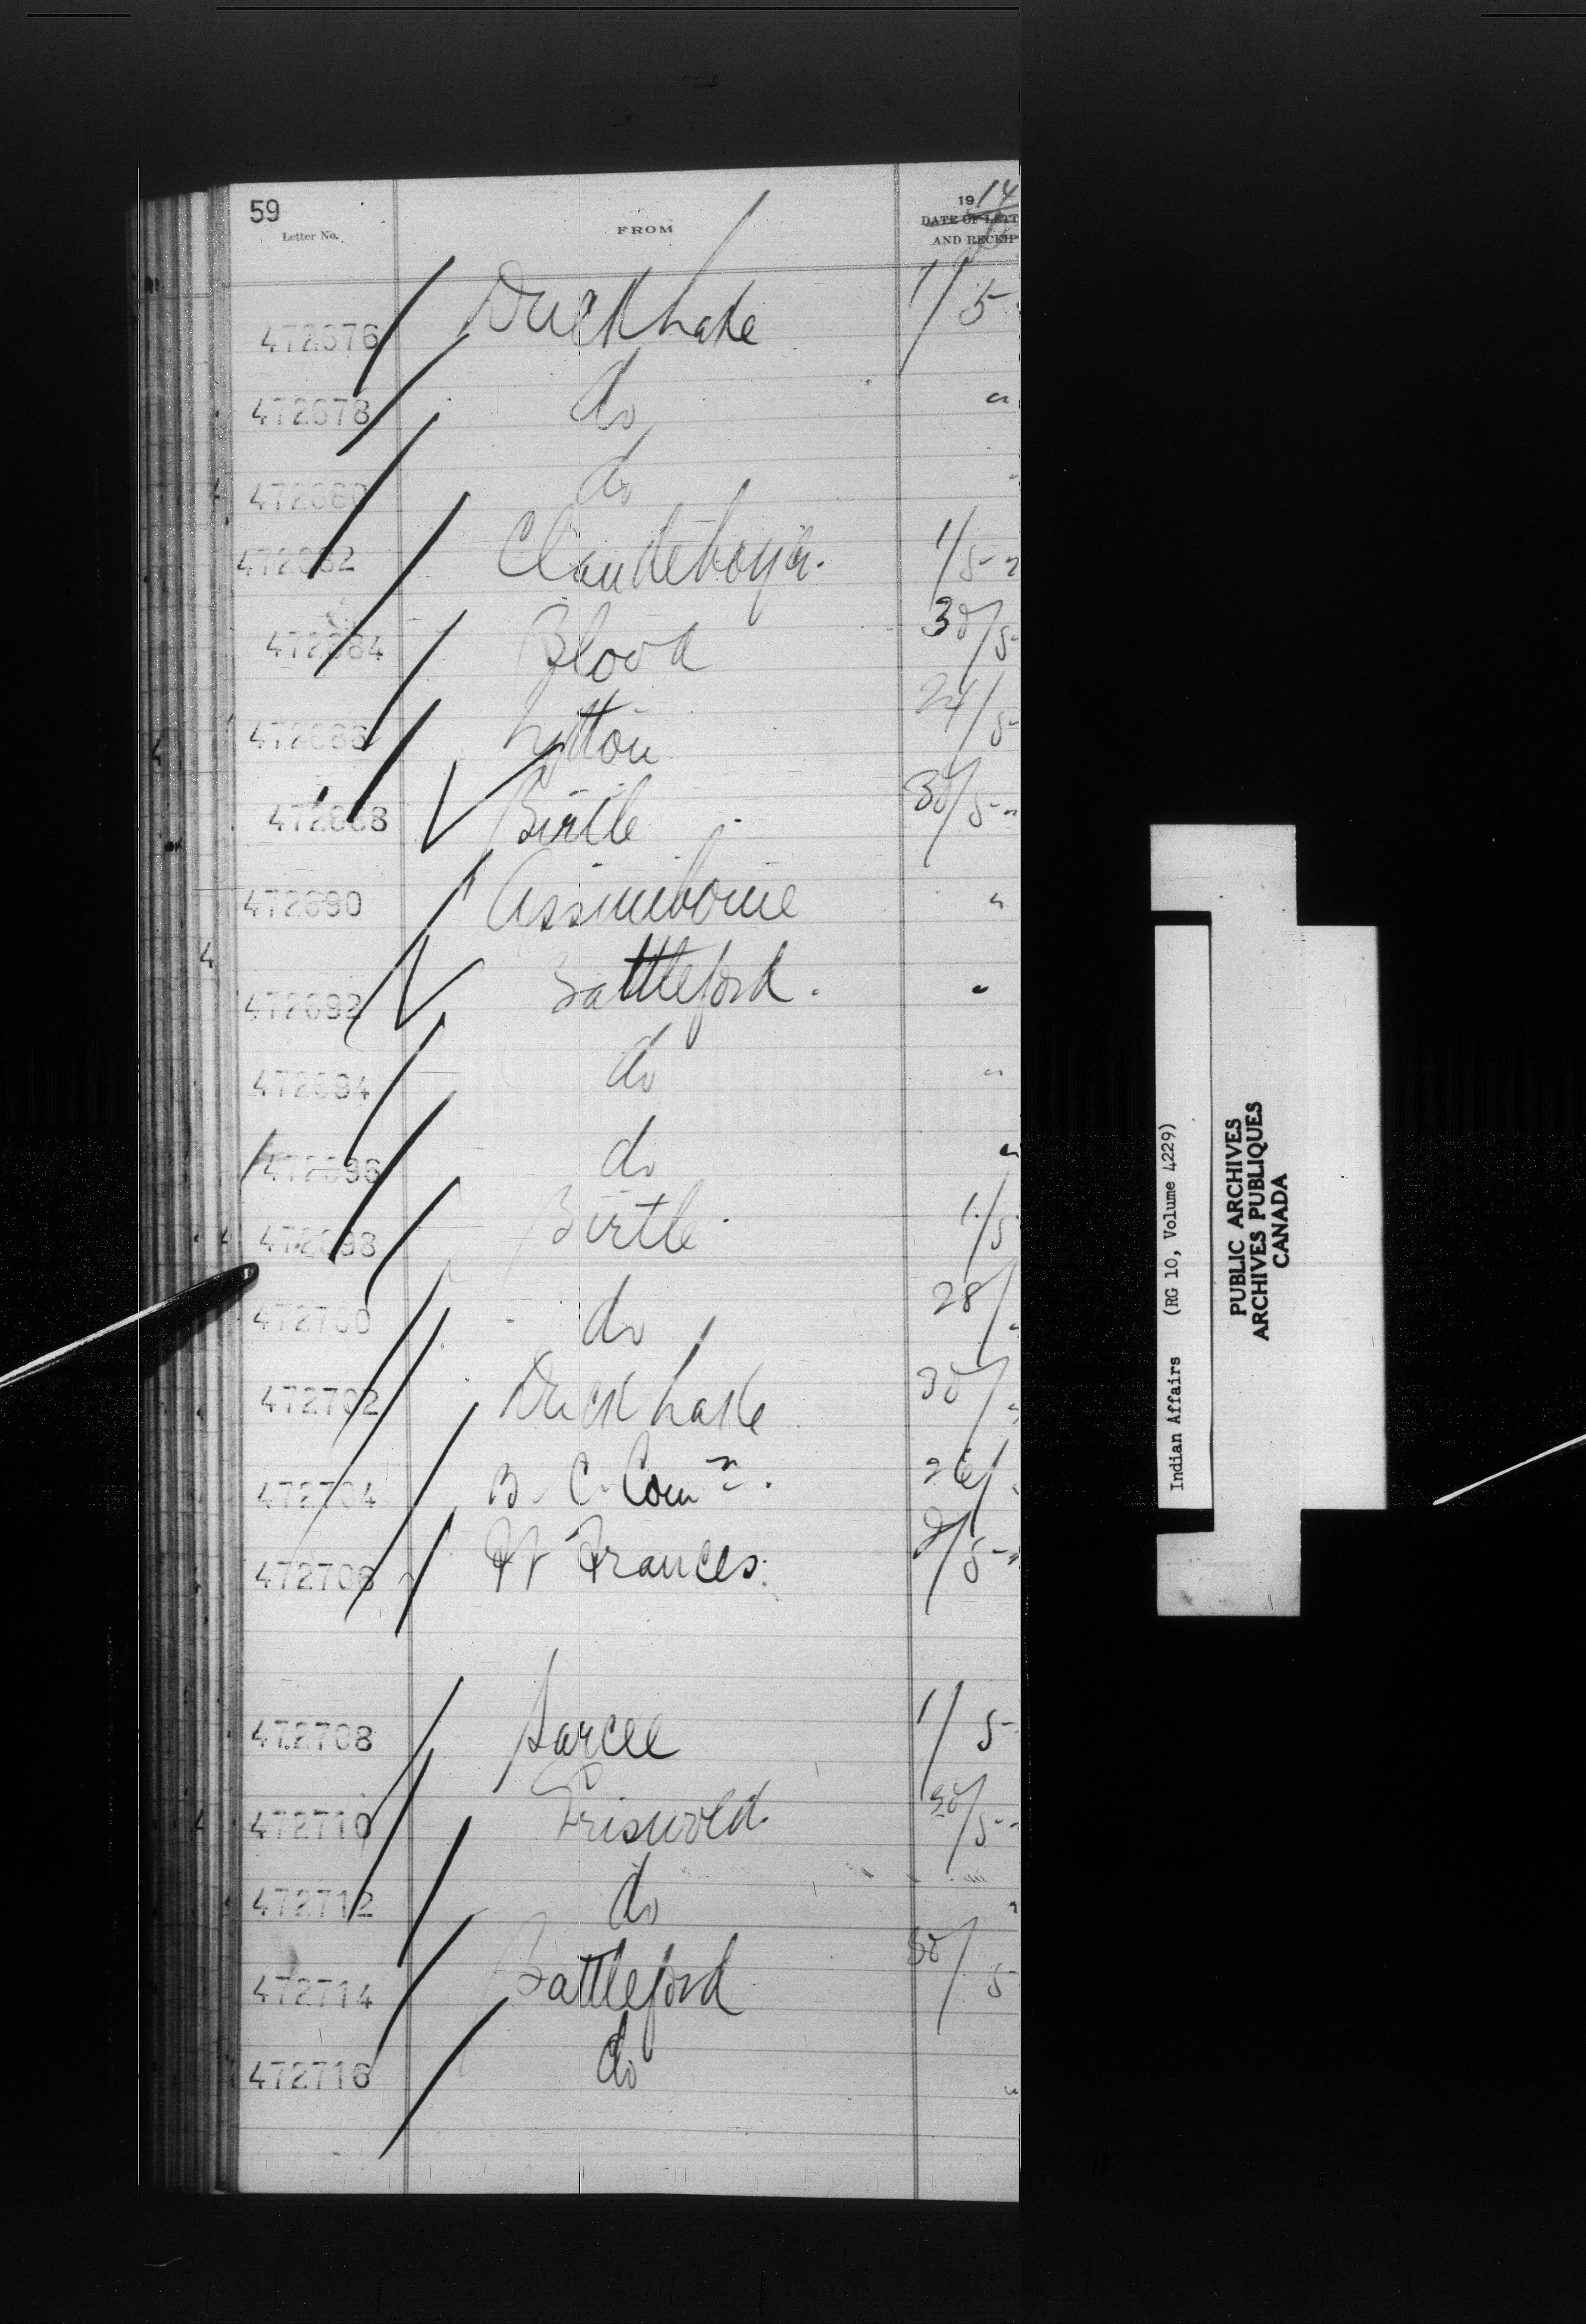 59
Letter No.
FROM
1914
DATE OF LETT
AND RECEIP
472676 Duck Lake 1/5
472678 do "
472680 do "
472682 Clandeboye. 1/5
472684 Blood 30/5
472686 Lytton 24/5
472688 Birtle 30/5
472690 Assiniboine "
472692 Battleford. "
472694 do "
472696 do "
472698 Birtle 1/5
472700 do 28/"
472702 Duck Lake 30/"
472704 B. C. Comn. 26/
472706 Ft Frances. 2/5
472708 Sarcee 1/5
472710 Griswold. 30/5
472712 do "
472714 Battleford 30/5
472716 do "
Indian Affairs (RG 10, Volume 4229)
PUBLIC ARCHIVES
ARCHIVES PUBLIQUES
CANADA